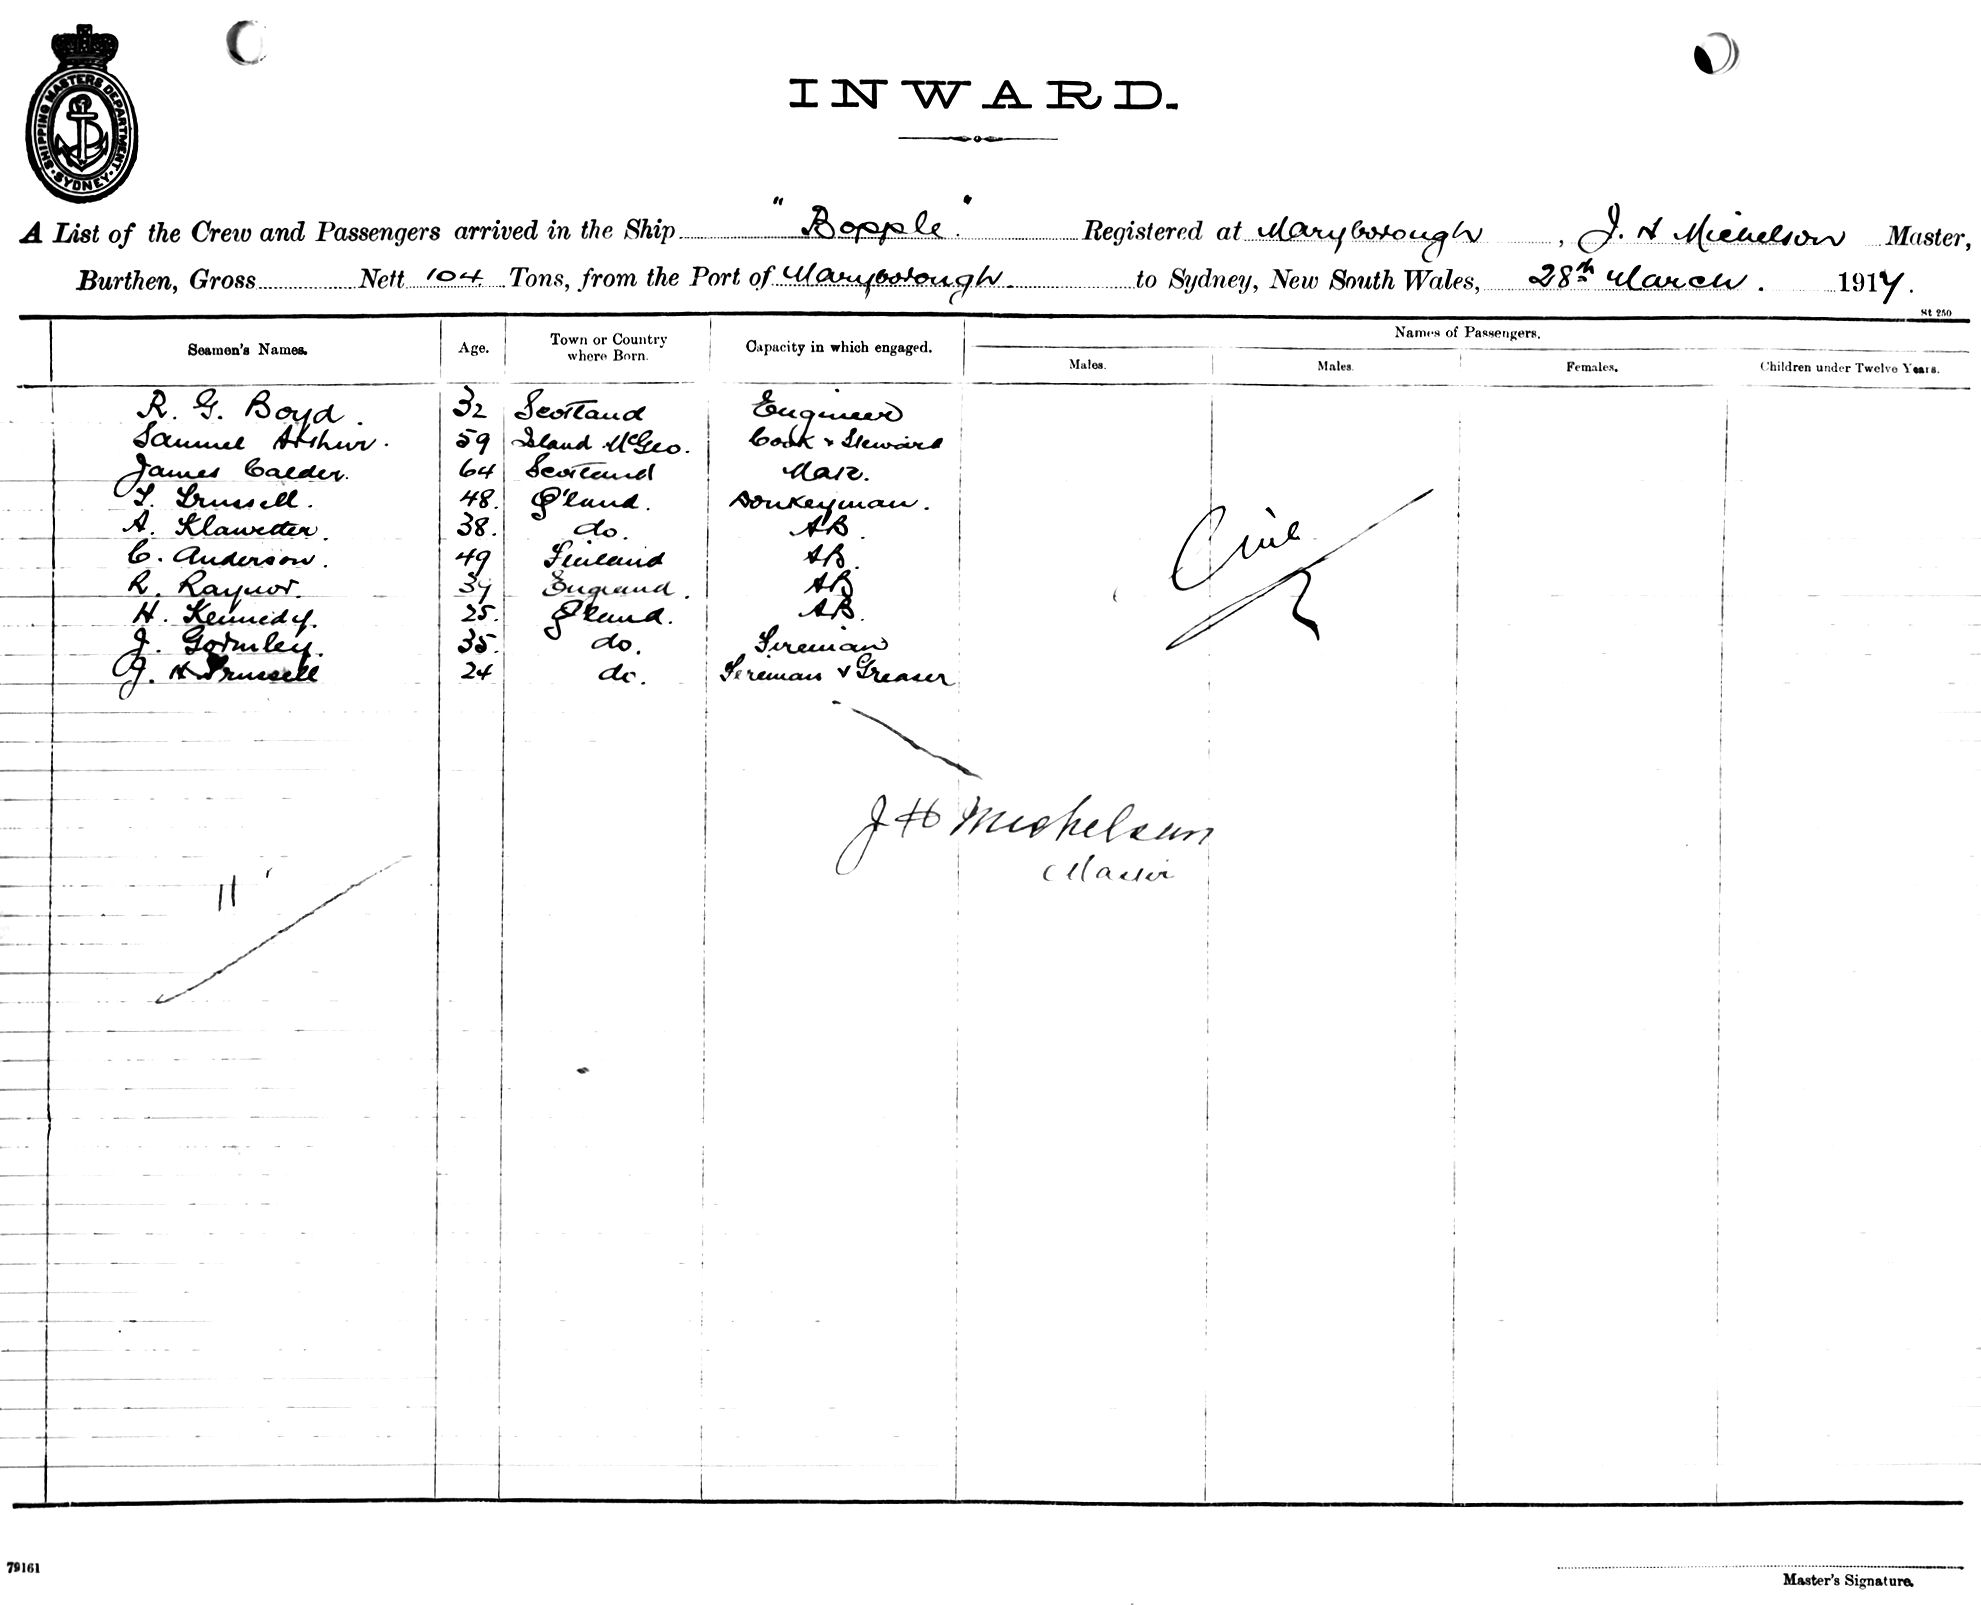 SHIPPING MASTERS DEPARTMENT · SYDNEY ·
INWARD.
A List of the Crew and Passengers arrived in the Ship "Bopple." Registered at Maryborough, J. H Michelson Master,
Burthen, Gross Nett 104 Tons, from the Port of Maryborough. to Sydney, New South Wales, 28th March. 1917.
St 250
Seamen's Names. Age. Town or Country where Born. Capacity in which engaged. Names of Passengers.
Males. Males. Females. Children under Twelve Years.
R. G. Boyd. 32 Scotland Engineer
Samuel Arthur. 59 Island McGeo. Cook & Steward
James Calder. 64 Scotland Mate.
T. Trussell. 48. Q'land. Donkeyman.
A. Klawetter. 38. do. AB
C. Anderson. 49 Finland AB.
R. Raynor. 39 England. AB
H. Kennedy. 25. Q'land. AB.
J. Gormley. 35. do. Fireman
J. H Trussell 24 do. Fireman & Greaser
J H Michelson
Master
11
79161
Master's Signature.